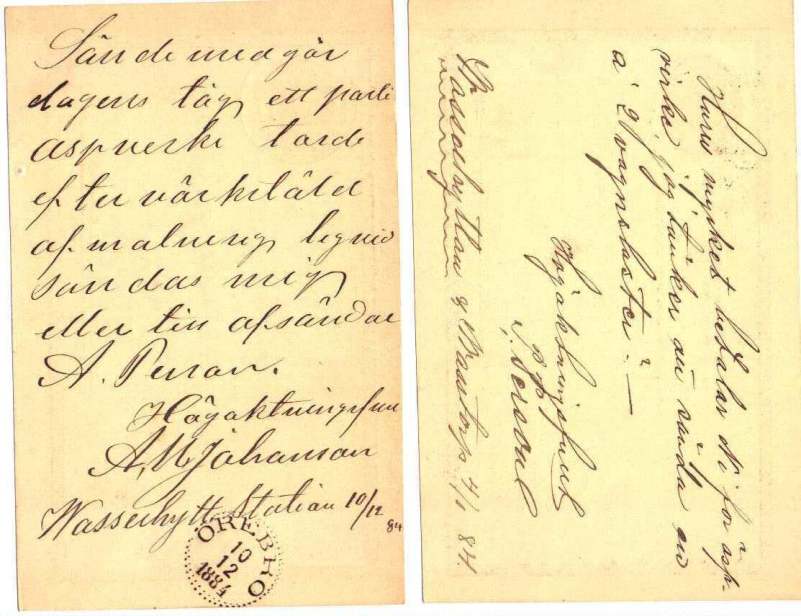 Sände med går
dagens tåg ett parti
aspverke torde
efter värkstäld
afmalning
sändas mig
eller till afsändare
A. Person.
Högaktningsfull
A, M Johanson
Wasserhytt Station 10/12 84
ÖREBRO
10
12
1884
Huru mycket betalar Ni för asp-
virke, jag tänker att sända en
a 2 vagnslaster. —
Högaktningsfull
P. Persson
4/1 84.